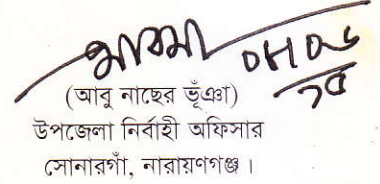 (আবু নাছের ভূঁঞা)
উপজেলা নির্বাহী অফিসার
সোনারগাঁ, নারায়ণগঞ্জ।